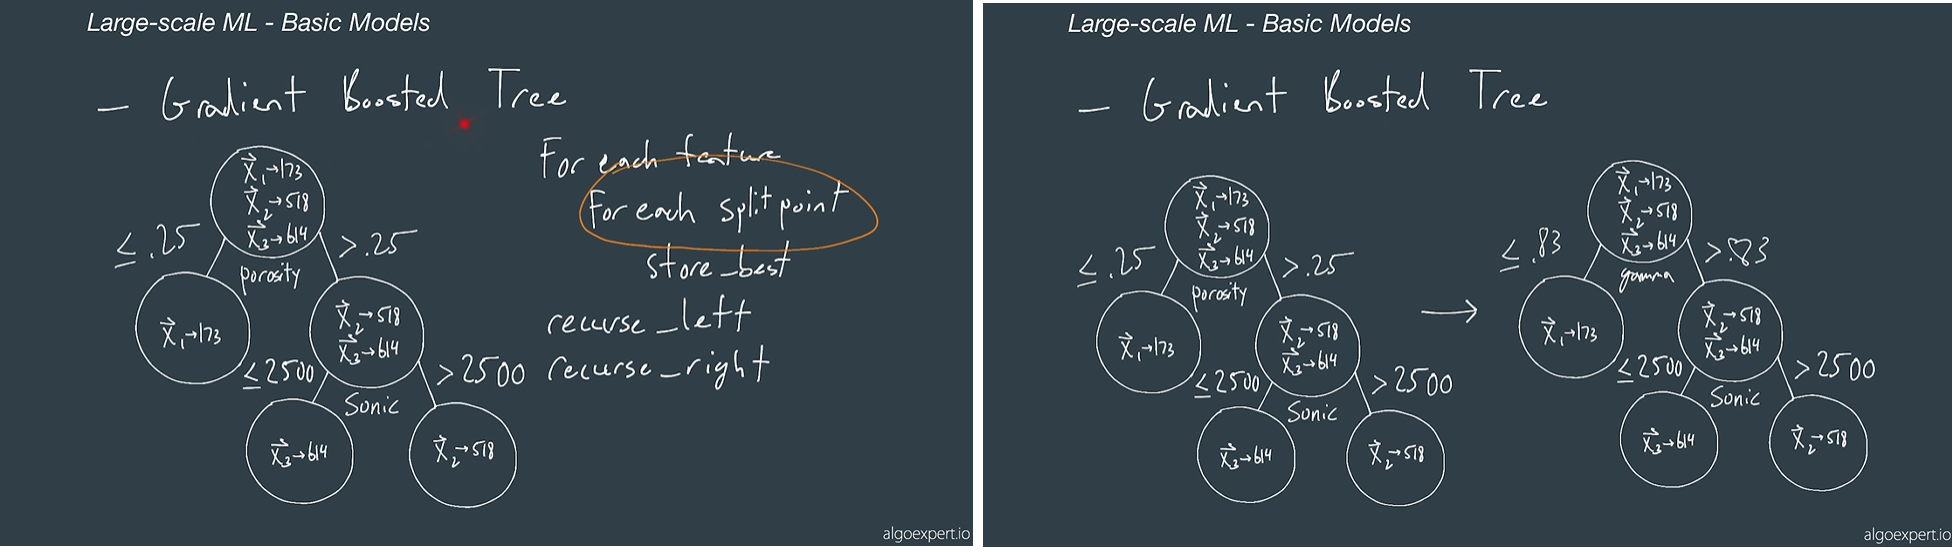 Large-scale ML - Basic Models
– Gradient Boosted Tree
X⃗₁→173
X⃗₂→518
X⃗₃→614
≤.25
>.25
porosity
X⃗₁→173
X⃗₂→518
X⃗₃→614
≤2500
>2500
Sonic
X⃗₃→614
X⃗₂→518
For each feature
For each split point
store_best
recurse_left
recurse_right
algoexpert.io
Large-scale ML - Basic Models
– Gradient Boosted Tree
X⃗₁→173
X⃗₂→518
X⃗₃→614
≤.25
>.25
porosity
X⃗₁→173
X⃗₂→518
X⃗₃→614
≤2500
>2500
Sonic
X⃗₃→614
X⃗₂→518
→
X⃗₁→173
X⃗₂→518
X⃗₃→614
≤.83
>.83
gamma
X⃗₁→173
X⃗₂→518
X⃗₃→614
≤2500
>2500
Sonic
X⃗₃→614
X⃗₂→518
algoexpert.io